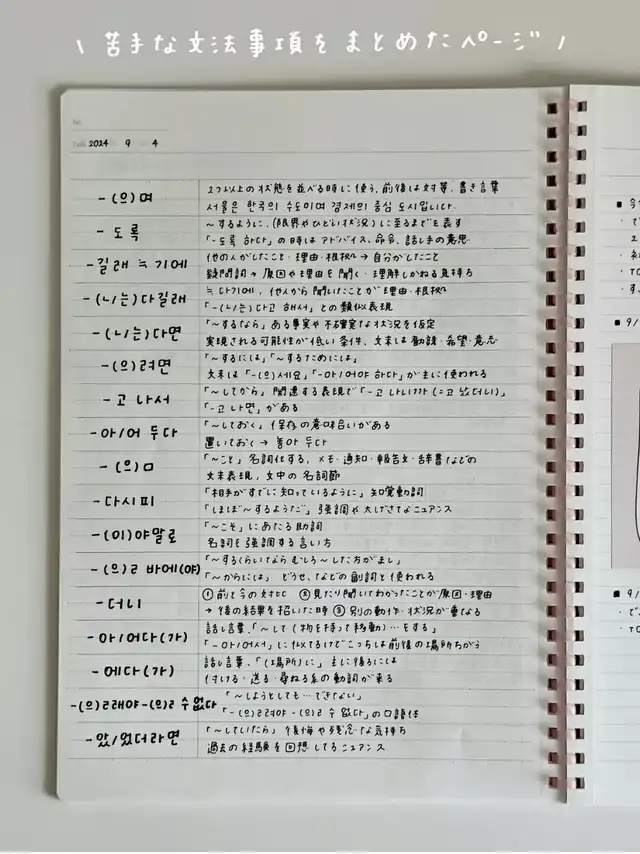 \ 苦手な文法事項をまとめたページ /
No.
Date 2024 9 4
-(으)며
2つ以上の状態を並べる時に使う、前後は対等、書き言葉
서울은 한국의 수도이며 경제의 중심 도시입니다.
- 도록
～するように、(限界やひどい状況)に至るまでを表す
「-도록 하다」の時はアドバイス、命令、話し手の意思
-길래 ≒ 기에
他の人がしたこと・理由・根拠 → 自分がしたこと
疑問詞 → 原因や理由を聞く・理解しかねる気持ち
-(ㄴ/는)다길래
≒ 다기에, 他人から聞いたことが理由・根拠
「-(ㄴ/는)다고 해서」との類似表現
-(ㄴ/는)다면
「～するなら」ある事実や不確実な状況を仮定
実現される可能性が低い条件、文末は勧誘・希望・意志
-(으)려면
「～するには」「～するためには」
文末は「-(으)세요」「-아/어야 하다」が主に使われる
-고 나서
「～してから」関連する表現で「-고 나니까 (=고 났더니)」
「-고 나면」がある
-아/어 두다
「～しておく」保存の意味合いがある
置いておく → 놓아 두다
-(으)ㅁ
「～こと」名詞化する、メモ・通知・報告文・辞書などの
文末表現、文中の名詞節
-다시피
「相手がすでに知っているように」知覚動詞
「ほぼ～するようだ」強調や大げさなニュアンス
-(이)야말로
「～こそ」にあたる助詞
名詞を強調する言い方
-(으)ㄹ 바에(야)
「～するくらいならむしろ～した方がまし」
「～からには」どうせ、などの副詞と使われる
-더니
①前と今の対比 ②見たり聞いてわかったことが原因・理由
→ 後の結果を招いた時 ③別の動作・状況が重なる
-아/어다(가)
話し言葉、「～して(物を持って移動)…をする」
「-아/어서」に似てるけどこっちは前後の場所ちがう
-에다(가)
話し言葉、「(場所)に」主に後ろには
付ける・送る・尋ねる系の動詞が来る
-(으)ㄹ래야 -(으)ㄹ 수 없다
「～しようとしても…できない」
「-(으)ㄹ려야 -(으)ㄹ 수 없다」の口語体
-았/었더라면
「～していたら」後悔や残念な気持ち
過去の経験を回想してるニュアンス
■ 9/
■ 9/